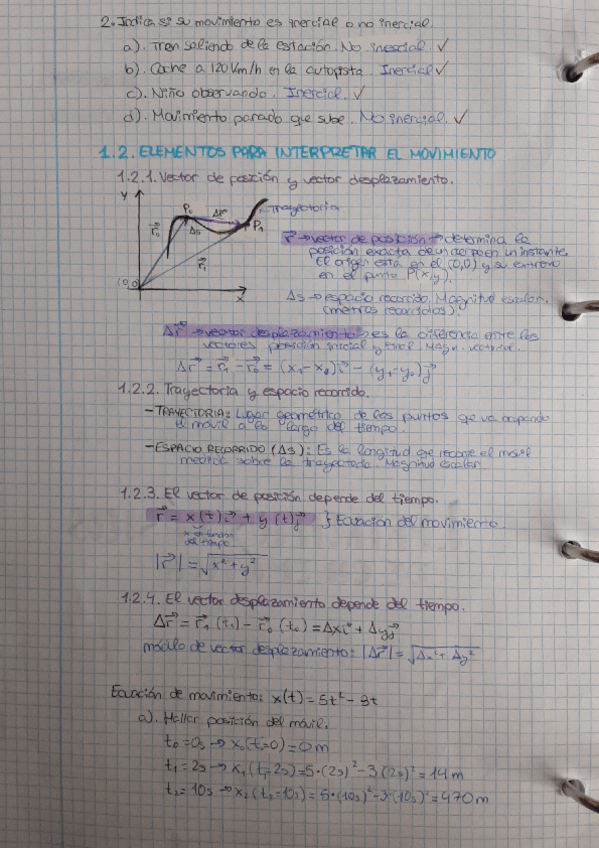 2. Indica si su movimiento es inercial o no inercial.
a). Tren saliendo de la estación. No inercial. ✓
b). Coche a 120 km/h en la autopista. Inercial ✓
c). Niño observando. Inercial. ✓
d). Movimiento parado que sube. No inercial. ✓
1.2. ELEMENTOS PARA INTERPRETAR EL MOVIMIENTO
1.2.1. Vector de posición y vector desplazamiento.
Y
P₀
Δr⃗
Trayectoria
r⃗₀
Δs
P₁
r⃗₁
(0,0)
X
r⃗ → vector de posición → determina la
posición exacta de un cuerpo en un instante.
El origen está en el (0,0) y su extremo
en el punto P(x,y).
Δs → espacio recorrido. Magnitud escalar.
(metros recorridos).
Δr⃗ → vector desplazamiento: es la diferencia entre los
vectores posición inicial y final. Magn. vectorial.
Δr⃗ = r⃗₁ - r⃗₀ = (x₁ - x₀)i⃗ - (y₁ - y₀)j⃗
1.2.2. Trayectoria y espacio recorrido.
- TRAYECTORIA: Lugar geométrico de los puntos que va ocupando
el móvil a lo largo del tiempo.
- ESPACIO RECORRIDO (Δs): Es la longitud que recorre el móvil
medida sobre la trayectoria. Magnitud escalar.
1.2.3. El vector de posición depende del tiempo.
r⃗ = x(t)i⃗ + y(t)j⃗ } Ecuación del movimiento
del tiempo
|r⃗| = √x² + y²
1.2.4. El vector desplazamiento depende del tiempo.
Δr⃗ = r⃗₁ (t₁) - r⃗₀ (t₀) = Δxi⃗ + Δyj⃗
módulo de vector desplazamiento: |Δr⃗| = √Δx² + Δy²
Ecuación de movimiento: x(t) = 5t² - 3t
a). Hallar posición del móvil.
t₀ = 0s → x₀(t=0) = 0 m
t₁ = 2s → x₁(t=2s) = 5·(2s)² - 3(2s)² = 14 m
t₂ = 10s → x₂(t=10s) = 5·(10s)² - 3·(10s)² = 470 m